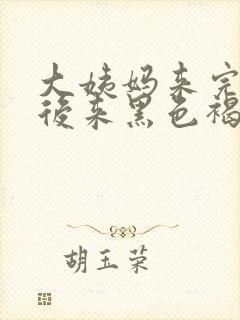 大姨妈来完
后来黑色褐
胡玉荣